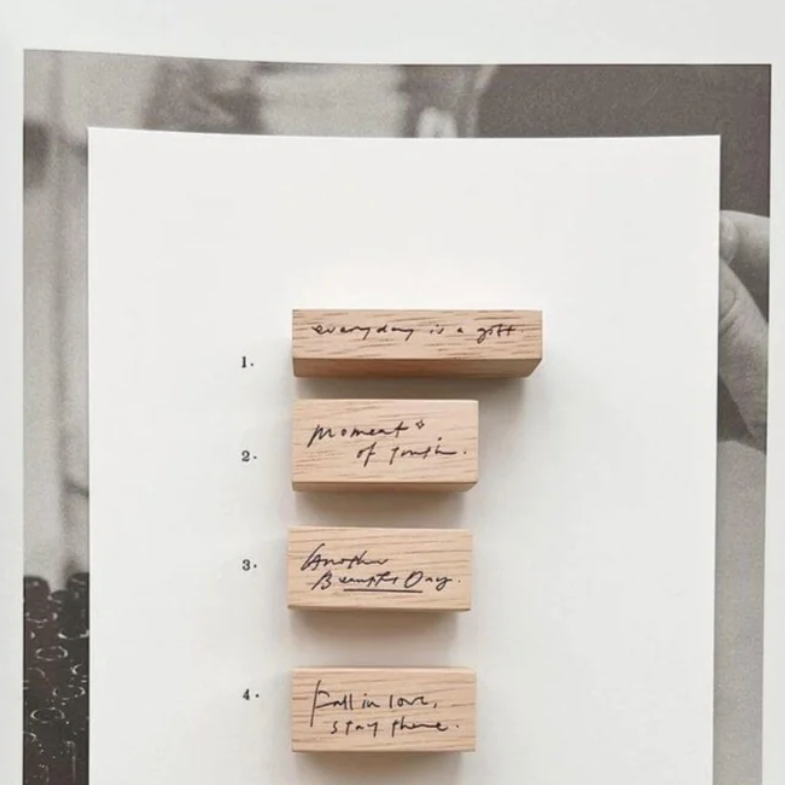 1.
everyday is a gift.
2.
Moment
of youth.
3.
Another
Beautiful Day.
4.
Fall in love,
stay there.